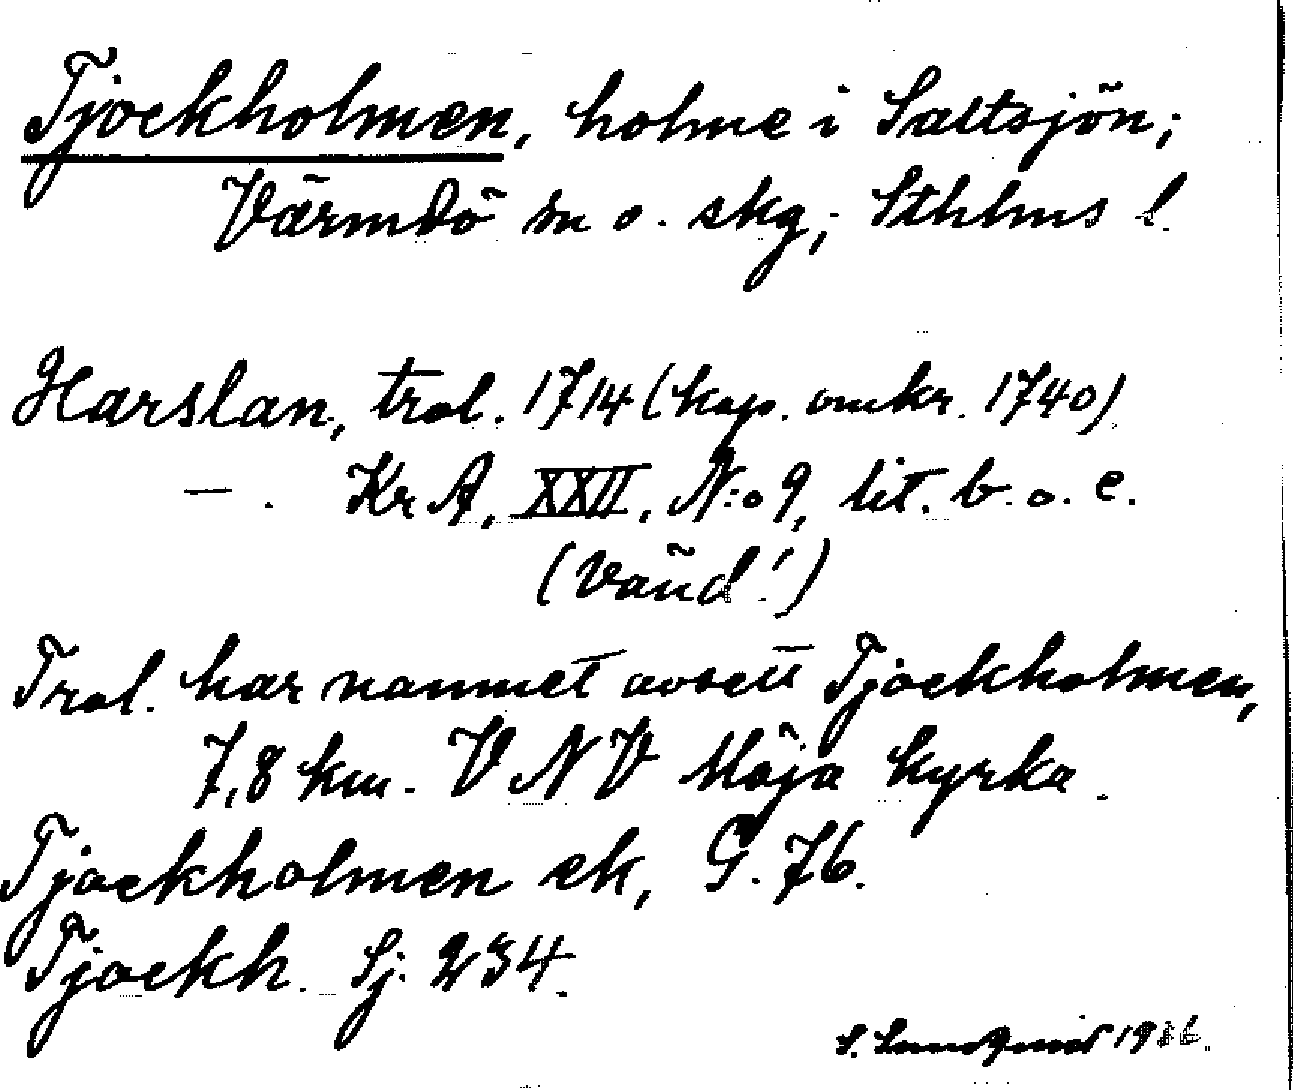 Tjockholmen, holme i Saltsjön;
Värmdö sn o. skg; Sthlms l.
Harslan, trol. 1714 (kop. omkr. 1740)
— . KrA, XXII, N:o 9, lit. b. o. c.
(Vänd!)
Trol. har namnet avsett Tjockholmen,
7,8 km. VNV Möja kyrka.
Tjockholmen ek, G. 76.
Tjockh. Sj. 234.
S. Sundqvist